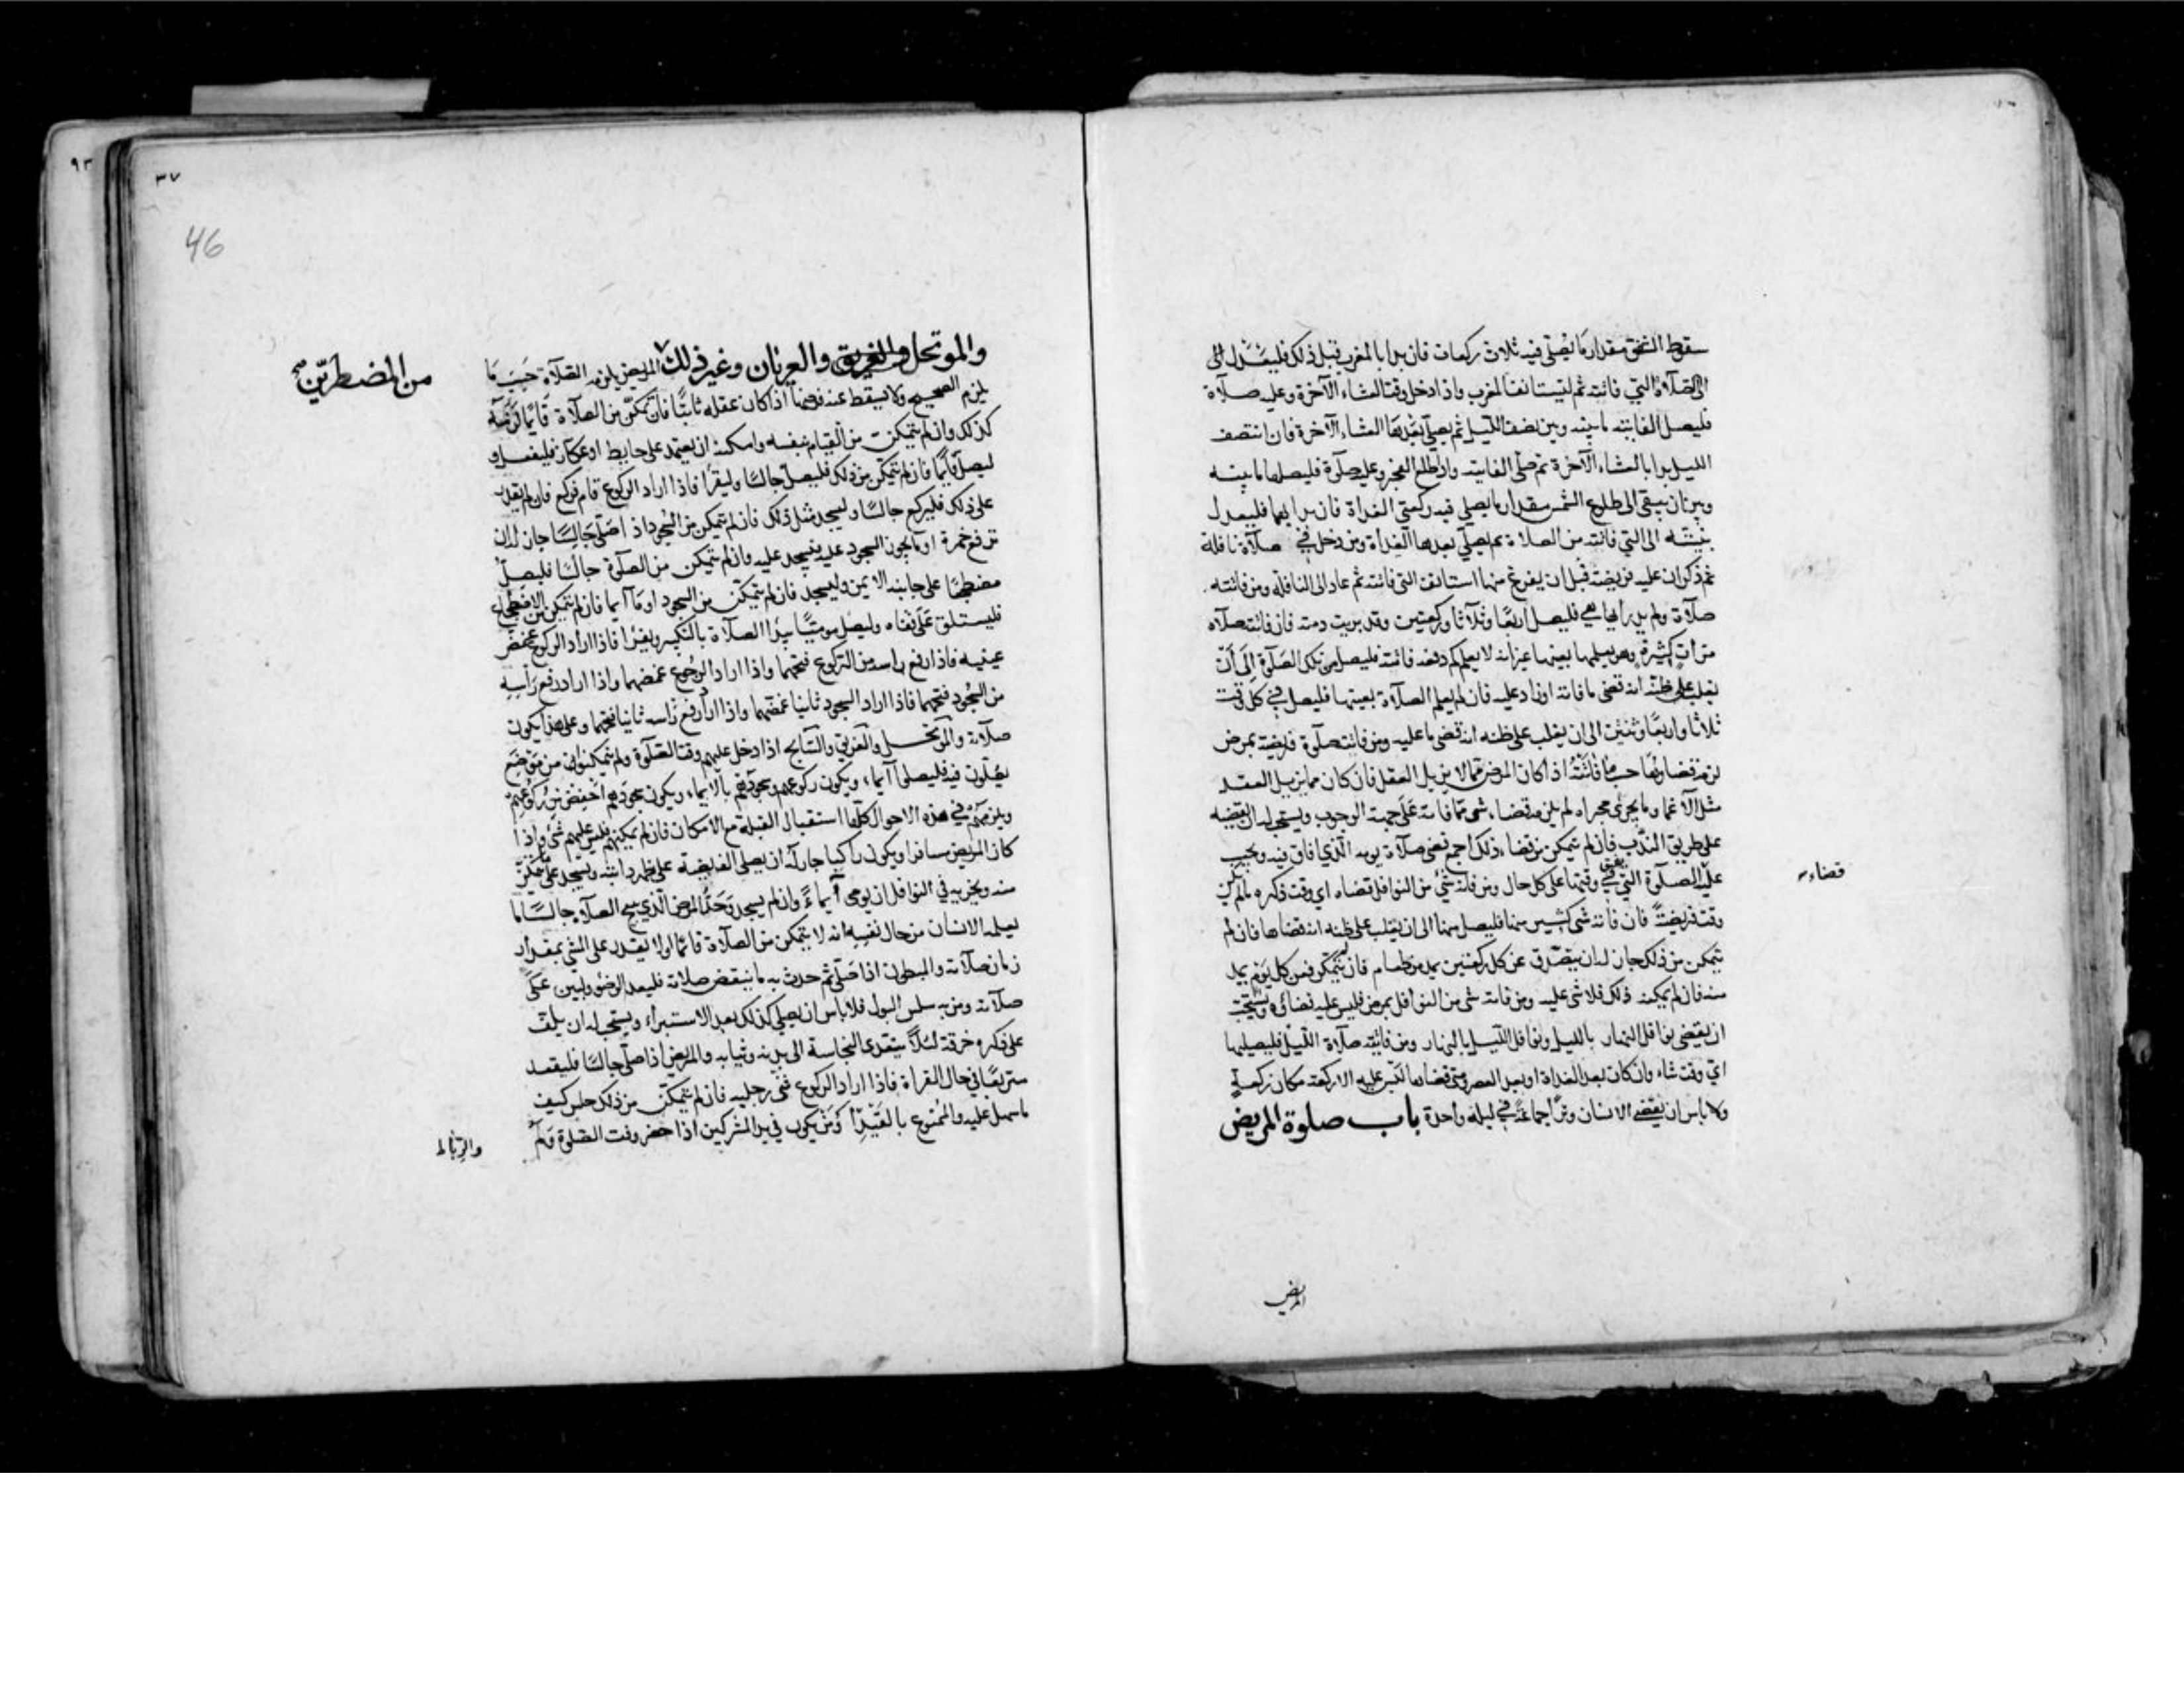 سقوط الشفق مقدار ما يصلي فيه ثلاث ركعات فان بدا بالمغرب قبل ذلك فليعدل الى
الى الصلاة التي فاتته ثم ليستانف المغرب واذا دخل وقت العشاء الآخرة وعليه صلاة
فليصل الفايتة ما بينه وبين نصف الليل ثم يصلي بعدها العشاء الآخرة فان انتصف
الليل بدا بالعشاء الآخرة ثم صلى الفايتة واذا طلع الفجر وعليه صلوة فليصلها ما بينه
وبين ان يبقى الى طلوع الشمس مقدار ما يصلي فيه ركعتي الغداة فان بدا بهما فليعدل
بنيته الى التي فاتته من الصلاة ثم يصلي بعدها الغداة ومن دخل في صلاة نافلة
ثم ذكر ان عليه فريضة قبل ان يفرغ منها استانف التي فاتته ثم عاد الى النافلة ومن فاتته
صلاة ولم يدر ايها هي فليصل اربعا وثلاثا وركعتين وقد بريت ذمته فان فاتته صلاة
مرات كثيرة وهو يعلمها بعينها غير انه لا يعلم كم دفعة فاتته فليصل من تلك الصلوة الى ان
يغلب على ظنه انه قضى ما فاته او زاد عليه فان لم يعلم الصلاة بعينها فليصل في كل وقت
ثلاثا واربعا وثنتين الى ان يغلب على ظنه انه قضى ما عليه ومن فاتته صلوة فريضة بمرض
لزمه قضاوها حسب ما فاتته اذا كان المرض مما لا يزيل العقل فان كان مما يزيل العقل
مثل الاغما وما يجري مجراه لم يلزمه قضاء شي مما فاته على جهة الوجوب ويستحب له ان يقضيه
على طريق الندب فان لم يتمكن من قضاء ذلك اجمع قضى صلاة يومه الذي افاق فيه ويجب
عليه الصلوة التي يفيق في وقتها على كل حال ومن فاته شي من النوافل قضاه اي وقت ذكره ما لم يكن
قضاء
وقت فريضة فان فاته شي كثير منها فليصل منها الى ان يغلب على ظنه انه قضاها فان لم
يتمكن من ذلك جاز له ان يتصدق عن كل ركعتين بمد من طعام فان لم يتمكن فعن كل يوم بمد
منه فان لم يمكنه ذلك فلا شي عليه ومن فاته شي من النوافل بمرض فليس عليه قضاؤه ويستحب
ان يقضي نوافل النهار بالليل ونوافل الليل بالنهار ومن فاتته صلاة الليل فليصليها
اي وقت شاء وان كان بعد الغداة او بعد العصر ومتى قضاها ليس عليه الا ركعة مكان ركعة
ولا باس ان يقضي الانسان وترا جماعة في ليلة واحدة باب صلوة المريض
المريض
٣٧
٩٣
46
والموتحل والغريق والعريان وغير ذلك المريض يلزمه الصلاة حسب ما
من المضطرين صح
يلزم الصحيح ولا يسقط عنه فرضها اذا كان عقله ثابتا فان تمكن من الصلاة قايما لزمته
كذلك وان لم يتمكن من القيام بنفسه وامكنه ان يعتمد على حايط او عكاز فليفعل و
ليصل قايما فان لم يتمكن من ذلك فليصل جالسا وليقرا فاذا اراد الركوع قام فركع فان لم يقدر
على ذلك فليركع جالسا وليسجد مثل ذلك فان لم يتمكن من السجود اذا صلى جالسا جاز له ان
ترفع خمرة او ما يجوز السجود عليه فيسجد عليه وان لم يتمكن من الصلوة جالسا فليصل
مضطجعا على جانبه الايمن وليسجد فان لم يتمكن من السجود اوما ايما فان لم يتمكن من الاضطجاع
فليستلق على قفاه وليصل موميا يبدا الصلاة بالتكبير ويقرا فاذا اراد الركوع غمض
عينيه فاذا رفع راسه من الركوع فتحهما واذا اراد السجود غمضهما واذا اراد رفع راسه
من السجود فتحهما فاذا اراد السجود ثانيا غمضهما واذا اراد رفع راسه ثانيا فتحهما وعلى هذا يكون
صلاته والموتحل والغريق والسابح اذا دخل عليهم وقت الصلوة ولم يتمكنوا من موضع
يصلون فيه فليصلوا ايماء ويكون ركوعهم وسجودهم بالايماء ويكون سجودهم اخفض من ركوعهم
ويلزمهم في هذه الاحوال كلها استقبال القبلة مع الامكان فان لم يمكنهم فليس عليهم شي واذا
كان المريض مسافرا ويكون راكبا جاز له ان يصلي الفريضة على ظهر دابته ويسجد على ما يتمكن
منه ويجزيه في النوافل ان يومي ايماء وان لم يسجد وحد المرض الذي يبيح الصلاة جالسا ما
يعلمه الانسان من حال نفسه انه لا يتمكن من الصلاة قائما او لا يقدر على المشي بمقدار
زمان صلاته والمبطون اذا صلى ثم حدث به ما ينقض صلاته فليعد الوضوء وليبن على
صلاته ومن به سلس البول فلا باس ان يصلي كذلك بعد الاستبراء ويستحب له ان يلف
على ذكره خرقة لئلا يتعدى النجاسة الى بدنه وثيابه والمريض اذا صلى جالسا فليقعد
متربعا في حال القراة فاذا اراد الركوع ثنى رجليه فان لم يتمكن من ذلك جلس كيف
ما سهل عليه والممنوع بالقيد او من يكون في يد المشركين اذا حضر وقت الصلوة ولم
والرباط